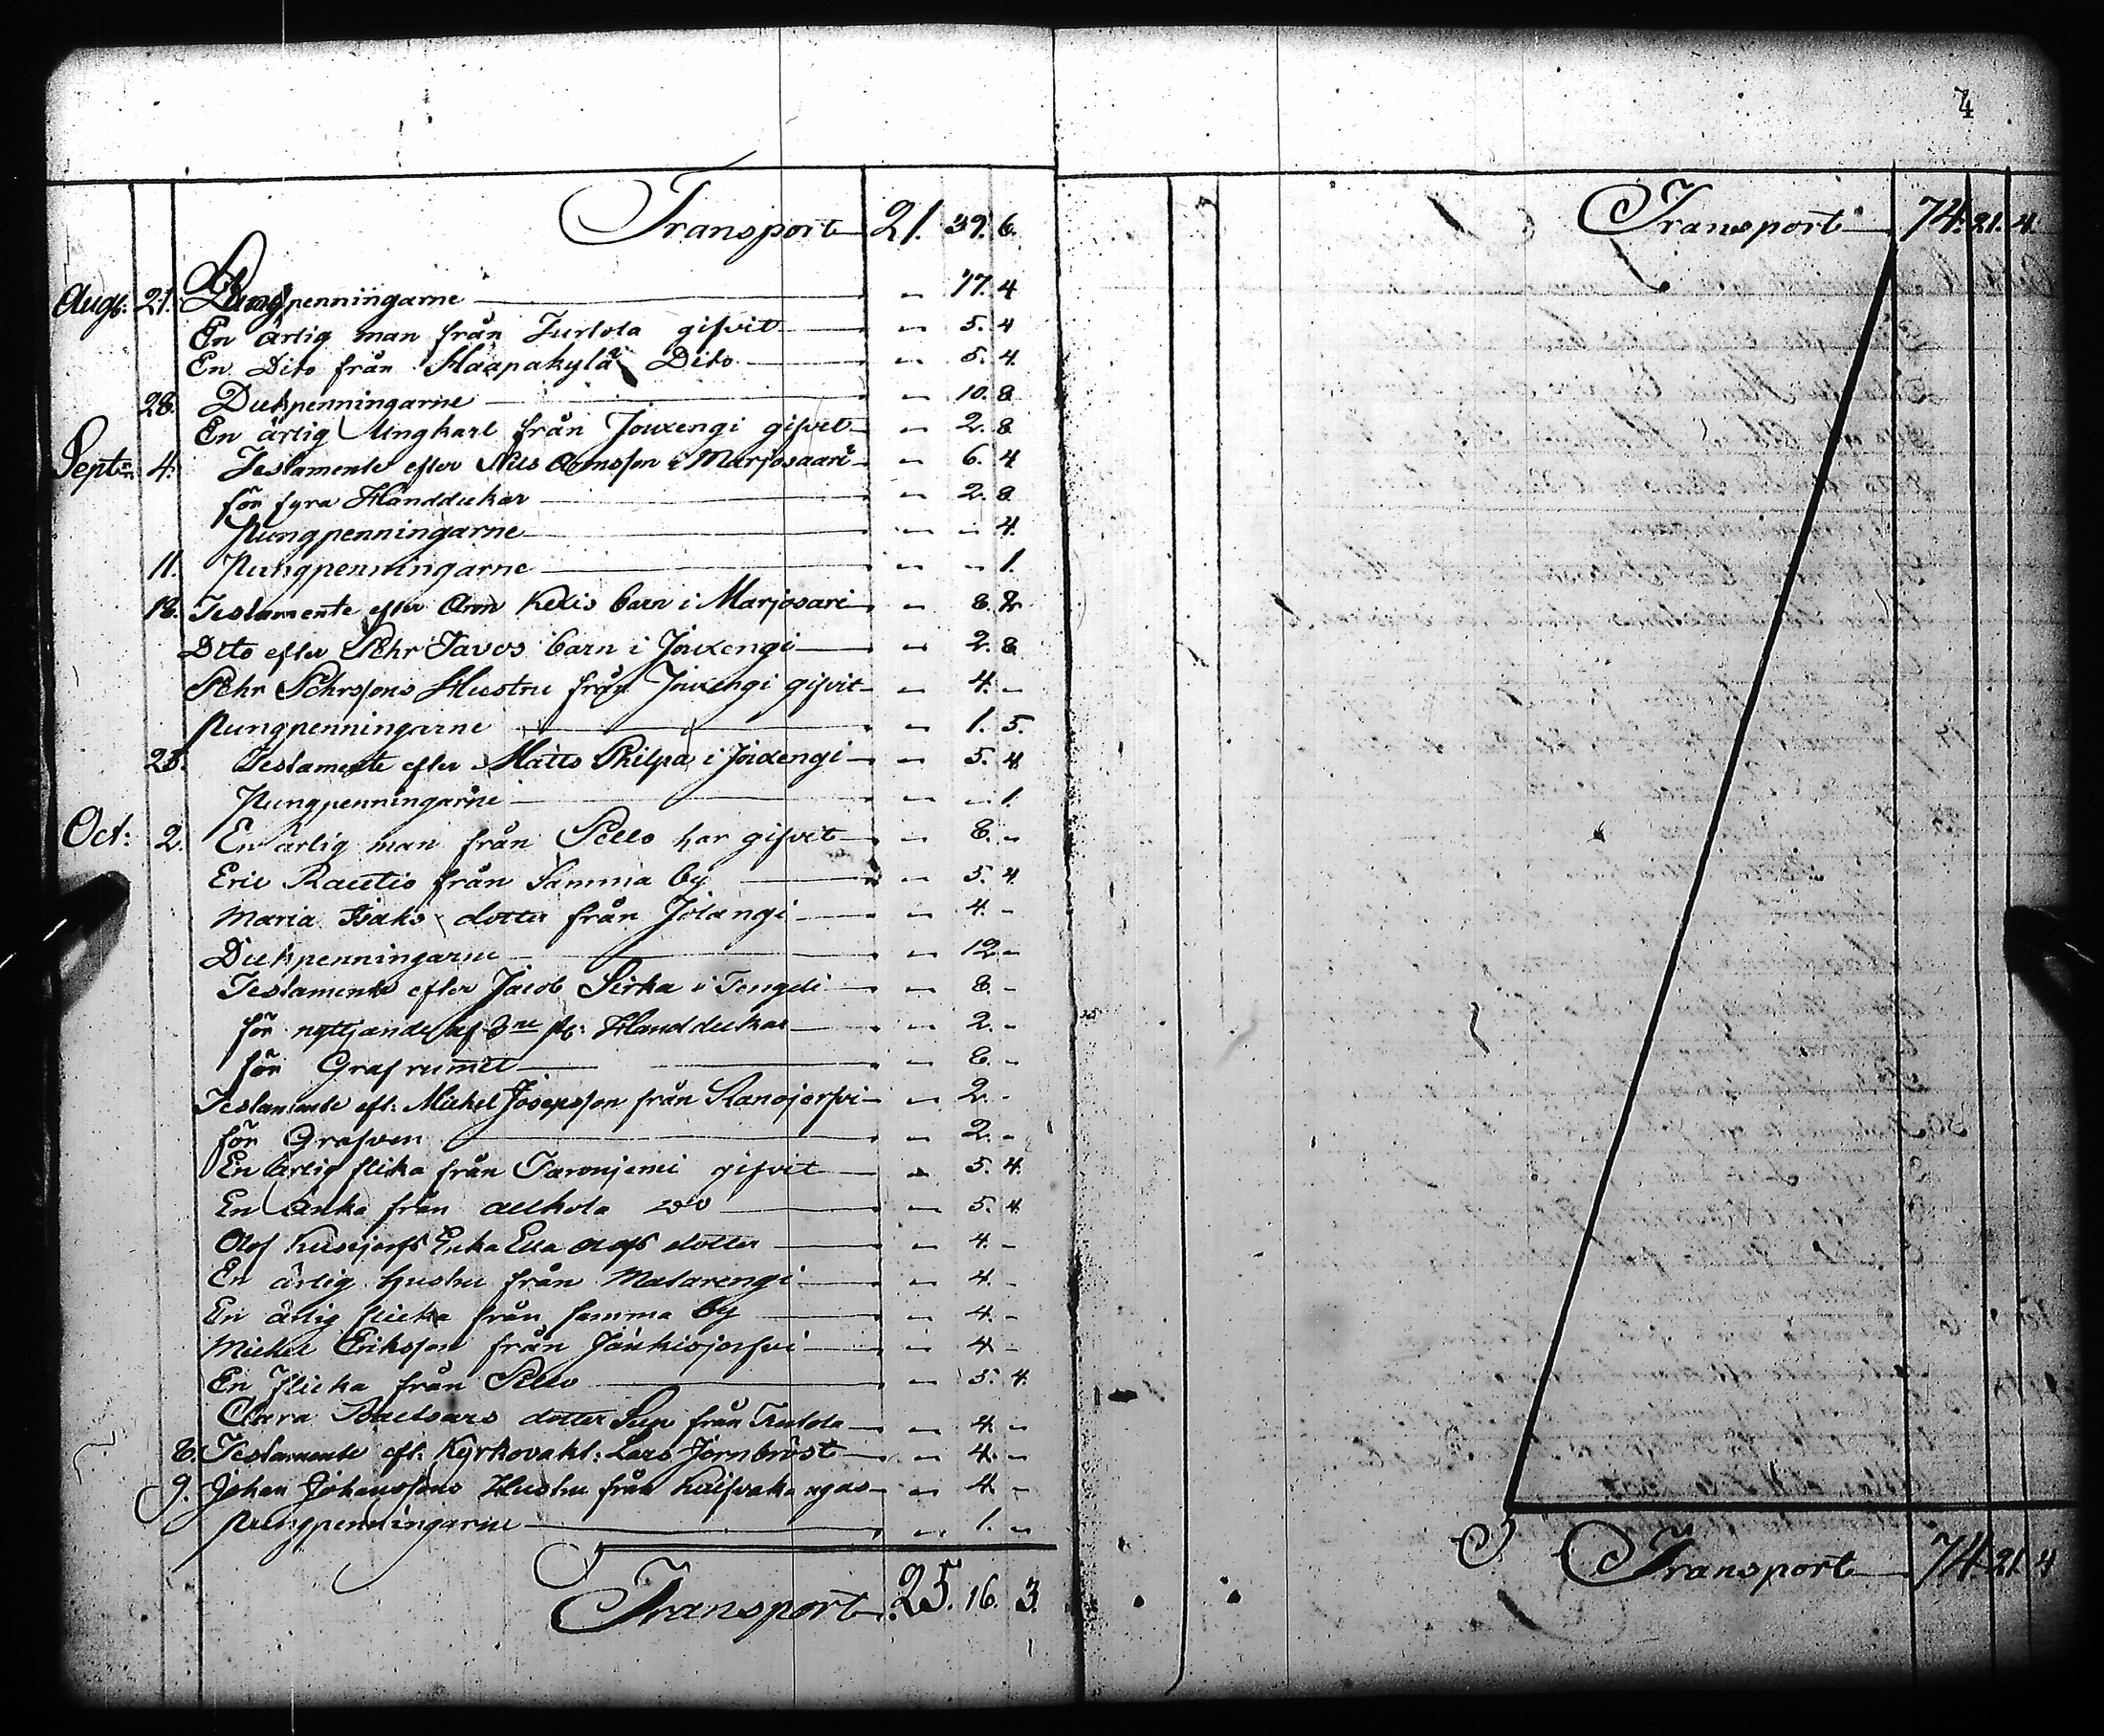 Transport 21. 39. 6.
Aug: 21. Pungpenningarne " 17. 4
En ärlig man från Turtola gifvit " 5. 4
En Dito från Haapakylä Dito " 5. 4.
28. Duekpenningarne " 10. 8
En ärlig Ungkarl från Jouxengi gifvit " 2. 8
Septr. 4. Testamente efter Nils i Marjosaari " 6. 4
för fyra Handdukar " 2. 8
Pungpenningarne " " 4.
11. Pungpenningarne " " 1.
18. Testamente efter Aron Kexis barn i Marjosari " 8.
Dito efter Pehr Tavos barn i Jouxengi " 2. 8
Pehr Pehrssons Hustru från Jouxengi gifvit " 4. "
Pungpenningarne " 1. 5.
25. Testamente efter Matts Philpa i Jouxengi " 5. 4
Pungpenningarne " " 1.
Oct: 2. En ärlig man från Pello har gifvit " 8. "
Eric Rautio från Samma by " 5. 4.
Maria Isaks dotter från Jolangi " 4. "
Duekpenningarne " 12. "
Testamente efter Jacob Sirka i Tengeli " 8. "
för nyttjande af 3ne st: Handdukar " 2. "
för Grafrumet " 8. "
Testamente eft: Mickel Josepsson från Ranojerfvi " 2. "
för Grafven " 2. "
En ärlig flika från Taronjemi gifvit " 5. 4.
En Enka från do " 5. 4.
Olof Enka Ella Olofs dotter " 4. "
En ärlig hustru från Matarengi " 4. "
En ärlig flicka från samma by " 4. "
Mickel Eriksson från Jänkisjerfvi " 4 "
En flicka från Pello " 5. 4.
Clara Baltsars dotter från " 4. "
8. Testamente eft: Kyrkovakt: Lars Jernbröst " 4. "
9. Johan Johanssons Hustru från " 4. "
Pungpenningarne " 1. "
Transport 25. 16. 3.
4
Transport 74. 21. 4.
Transport 74. 21. 4